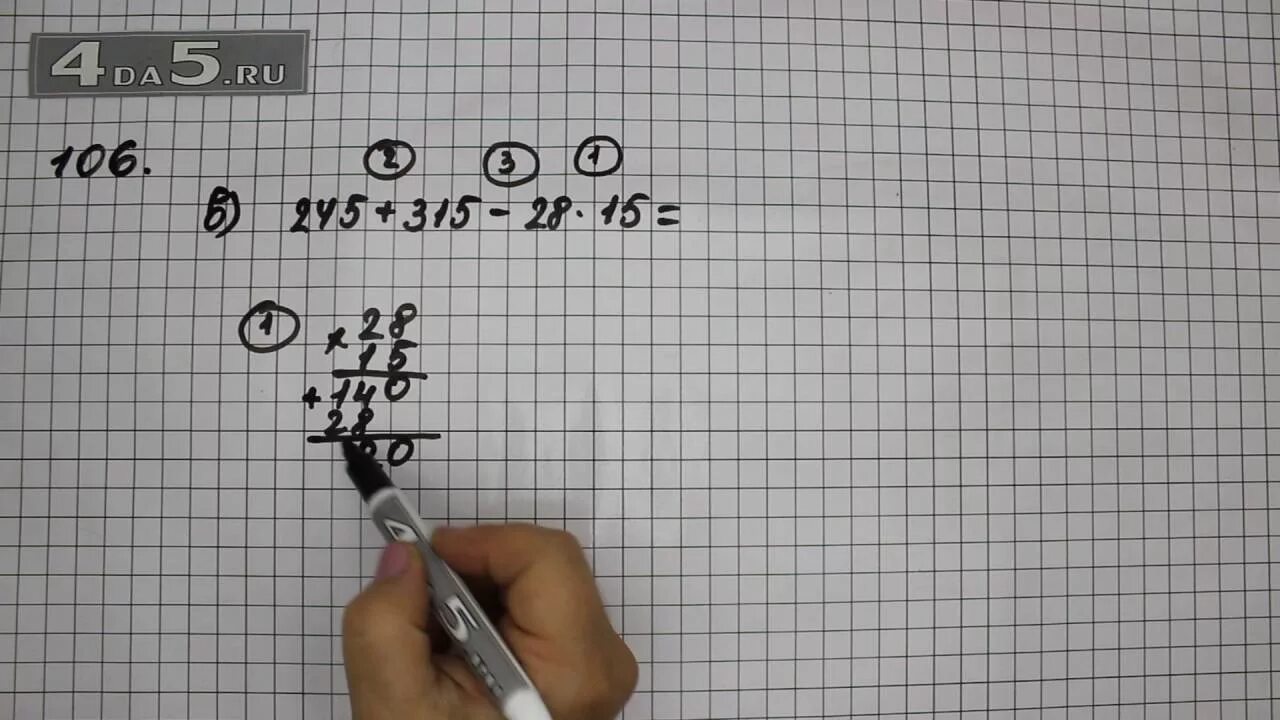 4DA5.RU
106.
2 3 1
б) 245 + 315 - 28 · 15 =
1 × 28
15
+ 140
28
20
4 5